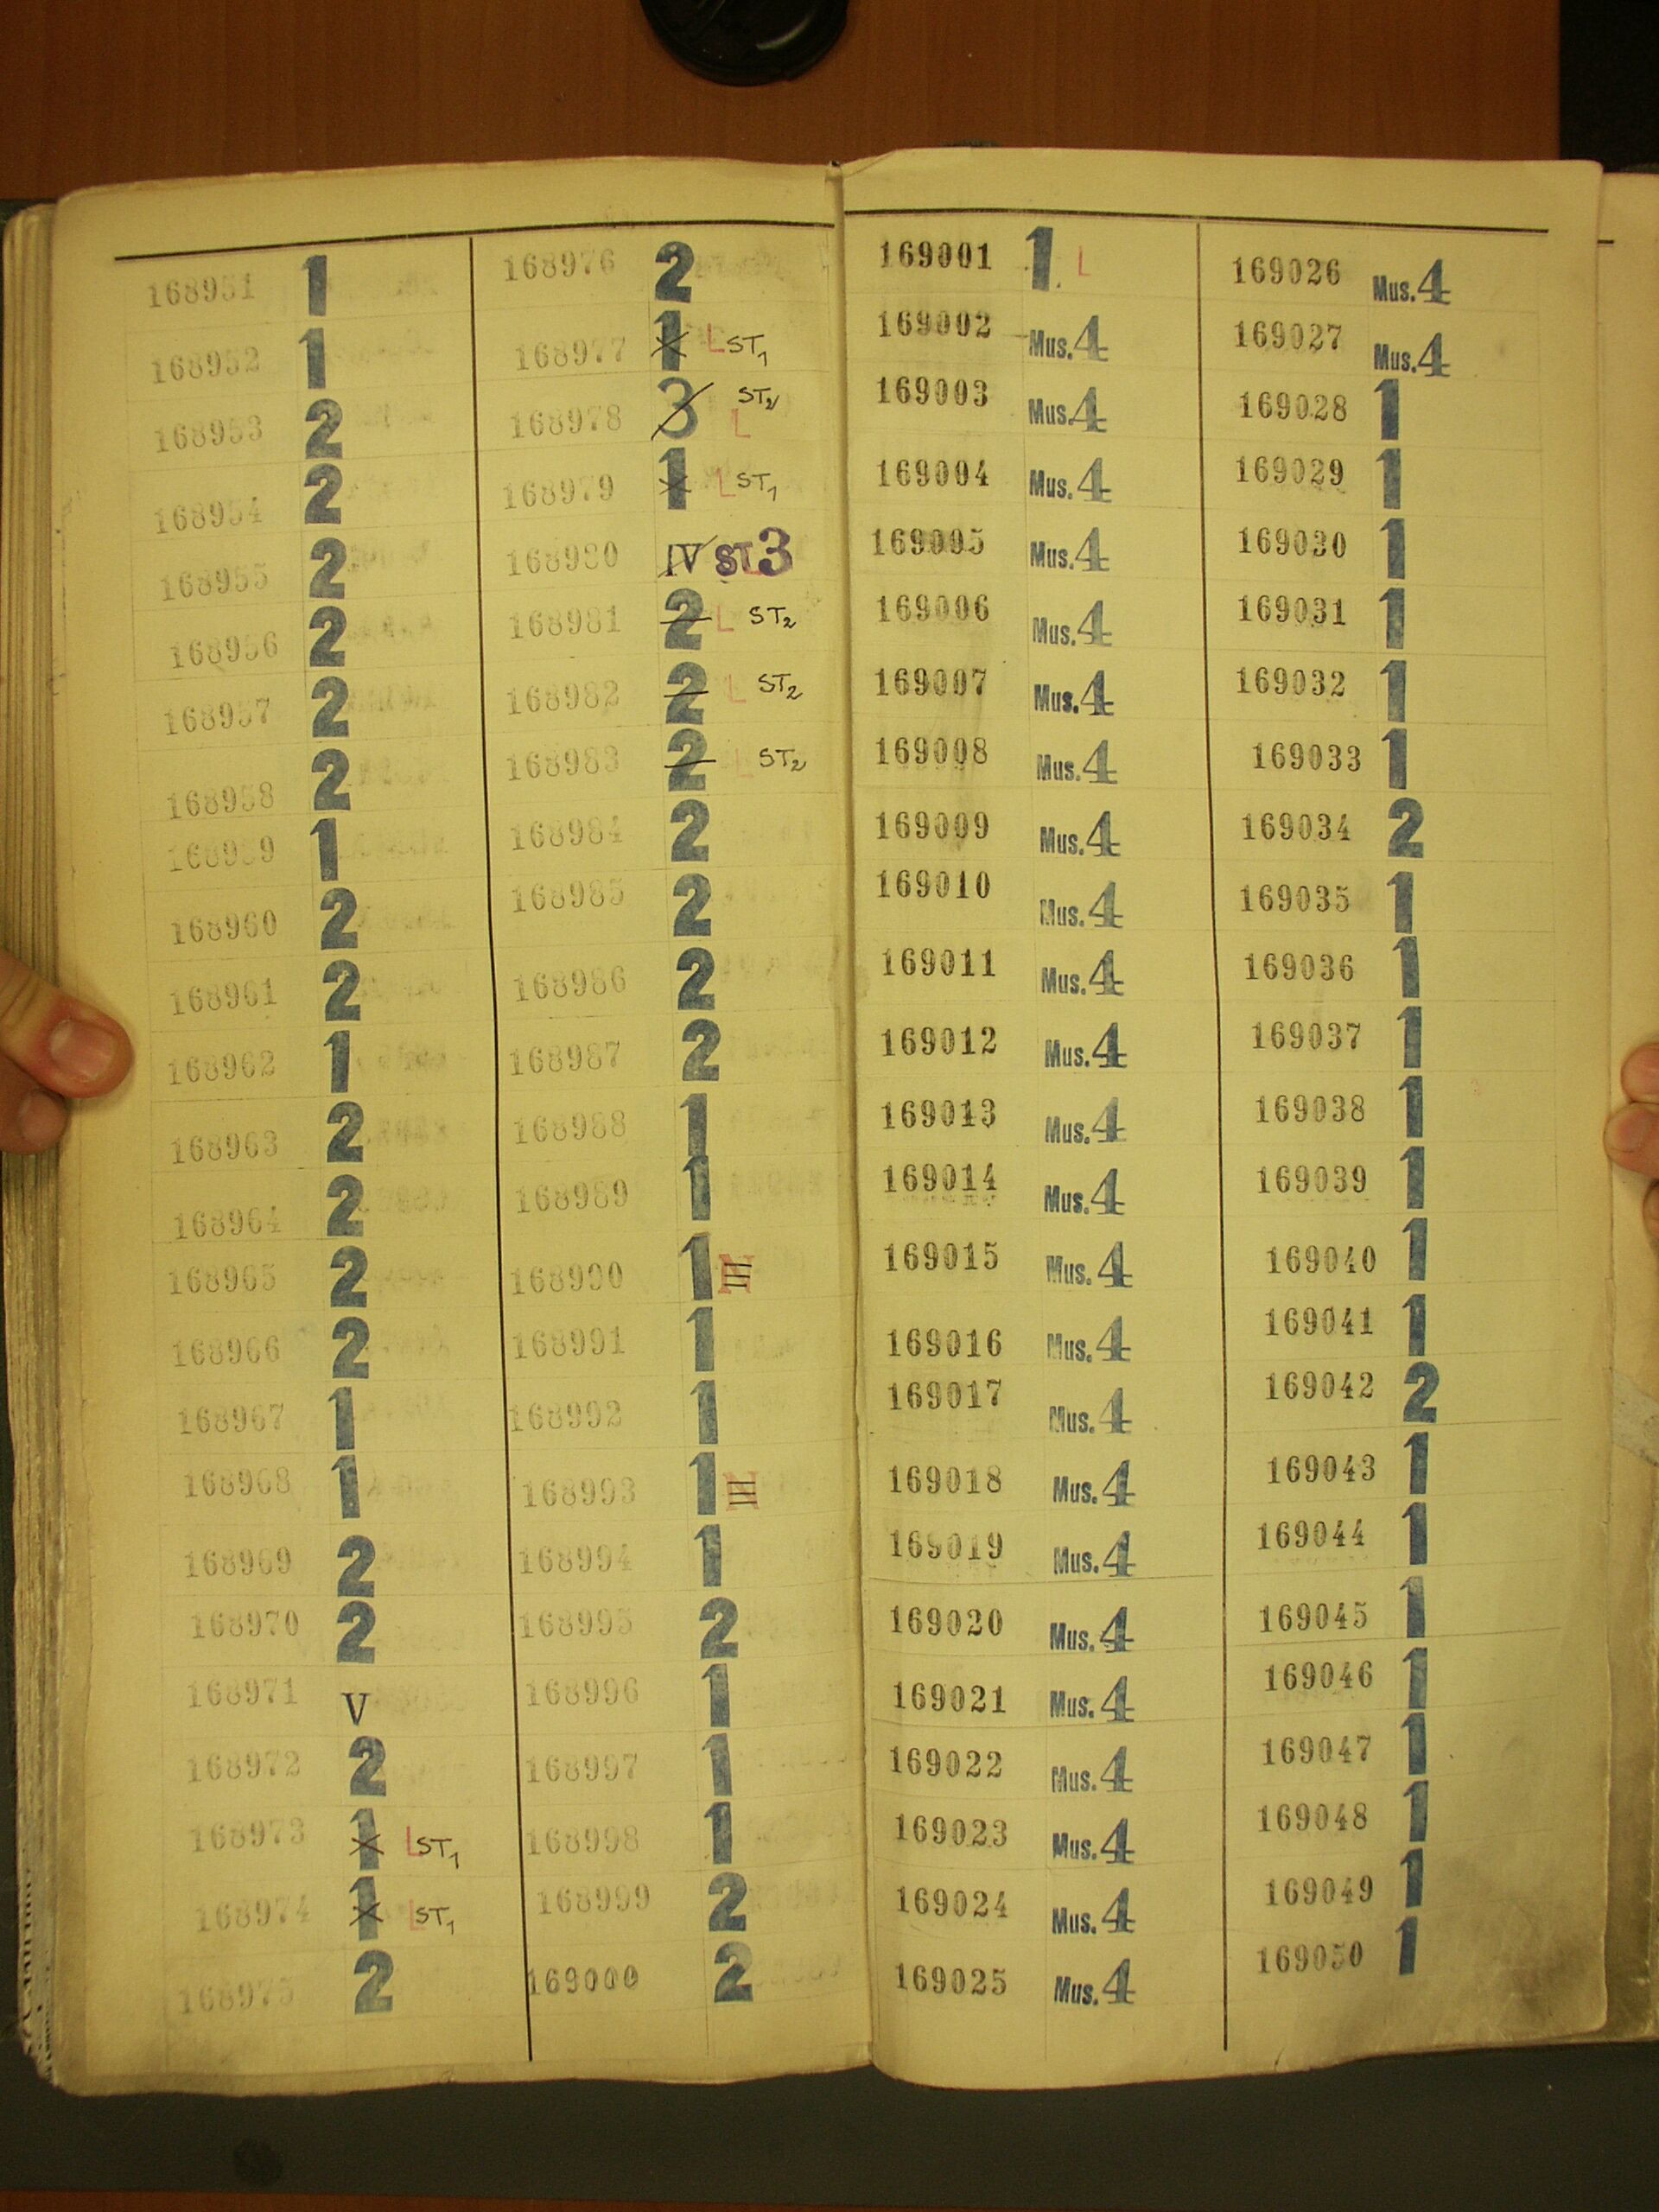 168951 1
168952 1
168953 2
168954 2
168955 2
168956 2
168957 2
168958 2
168959 1
168960 2
168961 2
168962 1
168963 2
168964 2
168965 2
168966 2
168967 1
168968 1
168969 2
168970 2
168971 V
168972 2
168973 1 L ST1
168974 1 L ST1
168975 2
168976 2
168977 1 L ST1
168978 3 L ST2
168979 1 L ST1
168980 IV ST3
168981 2 L ST2
168982 2 L ST2
168983 2 L ST2
168984 2
168985 2
168986 2
168987 2
168988 1
168989 1
168990 1 N
168991 1
168992 1
168993 1 N
168994 1
168995 2
168996 1
168997 1
168998 1
168999 2
169000 2
169001 1. L
169002 Mus.4
169003 Mus.4
169004 Mus.4
169005 Mus.4
169006 Mus.4
169007 Mus.4
169008 Mus.4
169009 Mus.4
169010 Mus.4
169011 Mus.4
169012 Mus.4
169013 Mus.4
169014 Mus.4
169015 Mus.4
169016 Mus.4
169017 Mus.4
169018 Mus.4
169019 Mus.4
169020 Mus.4
169021 Mus.4
169022 Mus.4
169023 Mus.4
169024 Mus.4
169025 Mus.4
169026 Mus.4
169027 Mus.4
169028 1
169029 1
169030 1
169031 1
169032 1
169033 1
169034 2
169035 1
169036 1
169037 1
169038 1
169039 1
169040 1
169041 1
169042 2
169043 1
169044 1
169045 1
169046 1
169047 1
169048 1
169049 1
169050 1